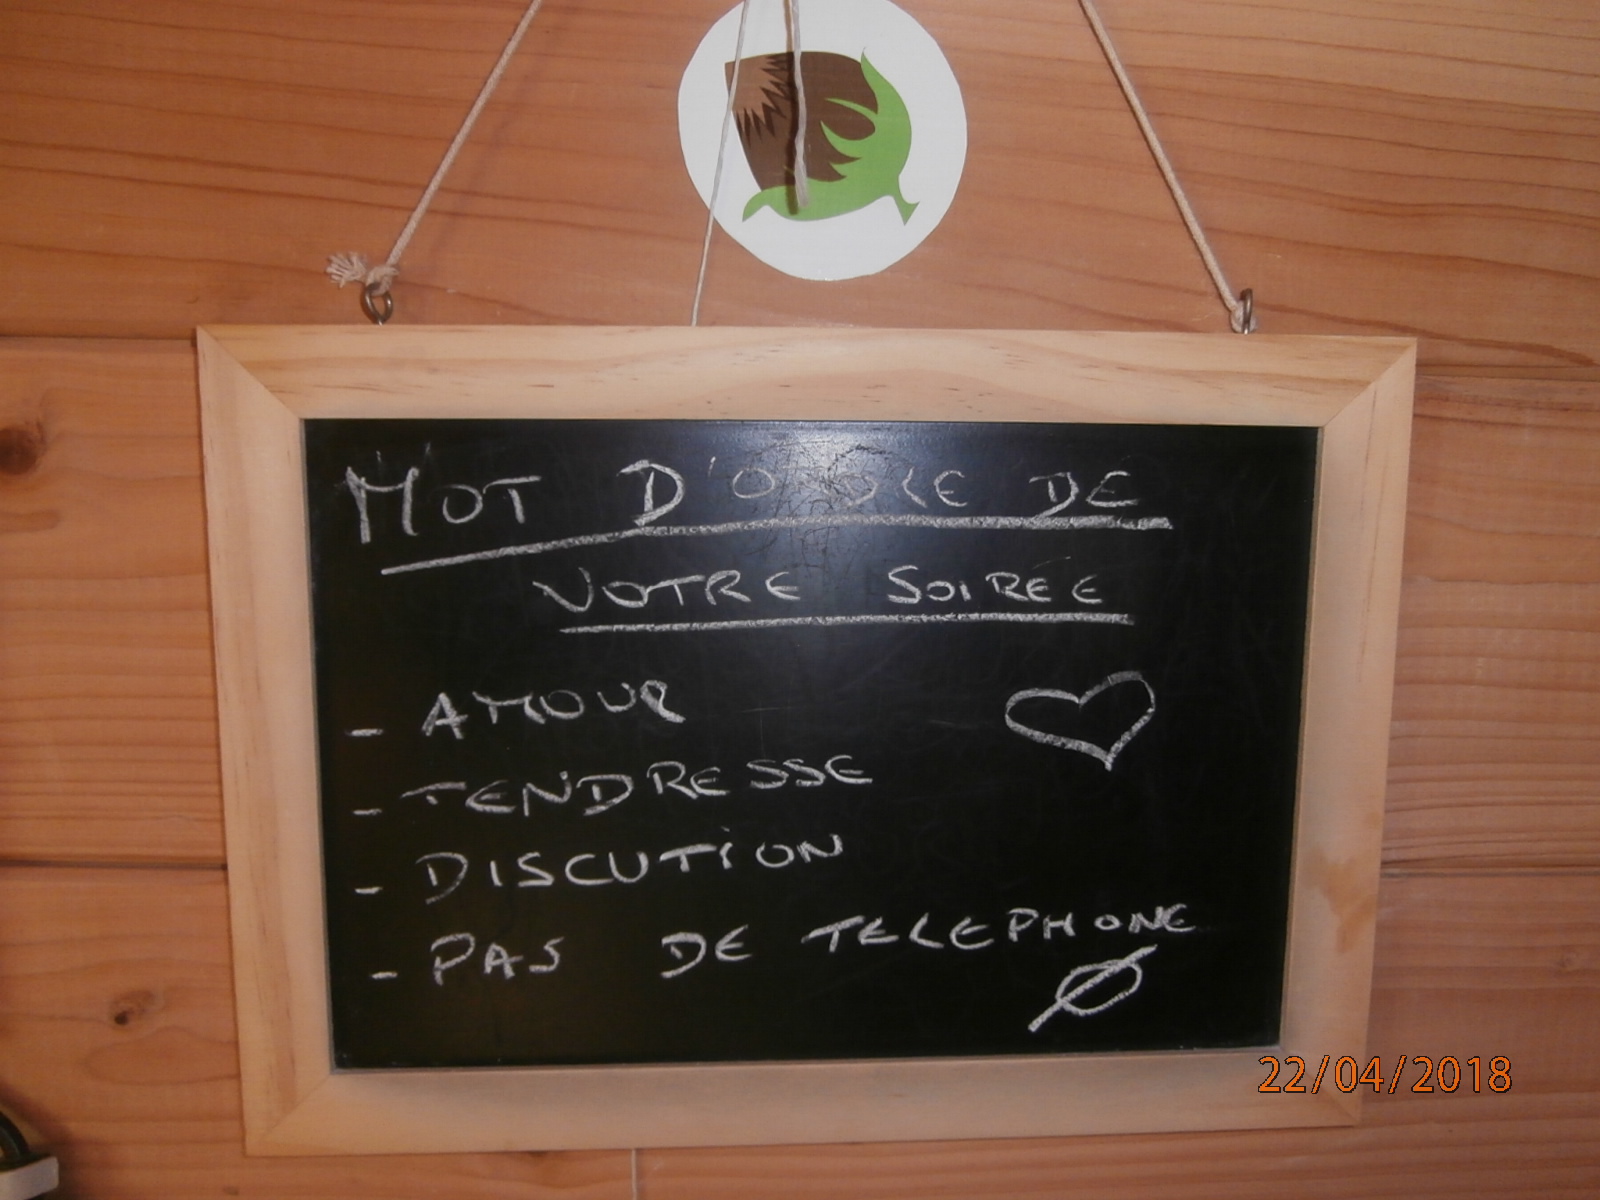 MOT D'ORDRE DE
VOTRE SOIRÉE
- AMOUR
- TENDRESSE
- DISCUTION
- PAS DE TELEPHONE
22/04/2018